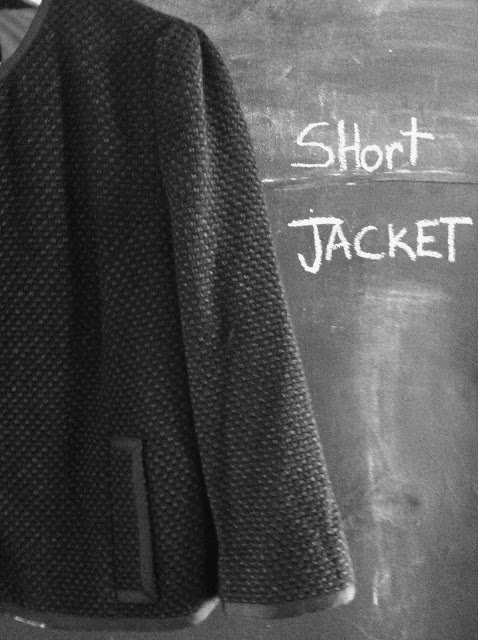 SHort
JACKET